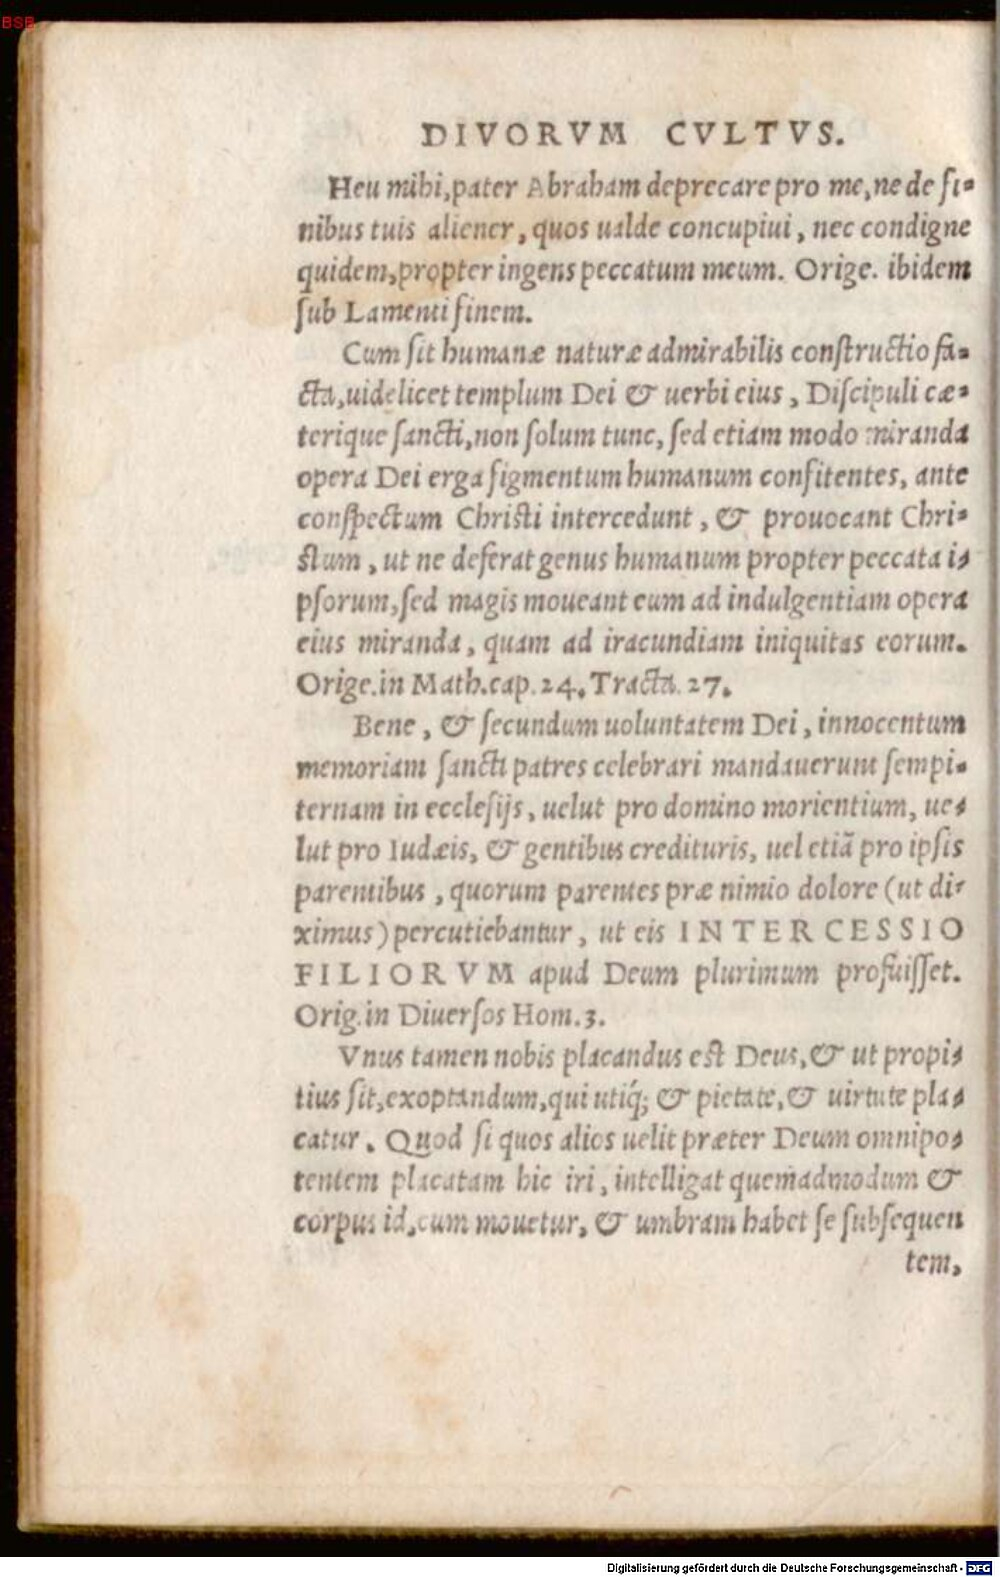 BSB
DIVORVM CVLTVS.
Heu mihi, pater Abraham deprecare pro me, ne de fi-
nibus tuis aliener, quos ualde concupiui, nec condigne
quidem, propter ingens peccatum meum. Orige. ibidem
sub Lamenti finem.
Cum sit humanæ naturæ admirabilis constructio fa-
cta, uidelicet templum Dei & uerbi eius, Discipuli cæ-
terique sancti, non solum tunc, sed etiam modo miranda
opera Dei erga figmentum humanum confitentes, ante
conspectum Christi intercedunt, & prouocant Chri-
stum, ut ne deserat genus humanum propter peccata i-
psorum, sed magis moueant eum ad indulgentiam opera
eius miranda, quam ad iracundiam iniquitas eorum.
Orige. in Math. cap. 24. Tracta. 27.
Bene, & secundum uoluntatem Dei, innocentum
memoriam sancti patres celebrari mandauerunt sempi-
ternam in ecclesijs, uelut pro domino morientium, ue-
lut pro Iudæis, & gentibus credituris, uel etiã pro ipsis
parentibus, quorum parentes præ nimio dolore (ut di-
ximus) percutiebantur, ut eis INTERCESSIO
FILIORVM apud Deum plurimum profuisset.
Orig. in Diuersos Hom. 3.
Vnus tamen nobis placandus est Deus, & ut propi-
tius sit, exoptandum, qui utiq́; & pietate, & uirtute pla-
catur. Quod si quos alios uelit præter Deum omnipo-
tentem placatam hic iri, intelligat quemadmodum &
corpus id, cum mouetur, & umbram habet se subsequen
tem,
Digitalisierung gefördert durch die Deutsche Forschungsgemeinschaft - DFG